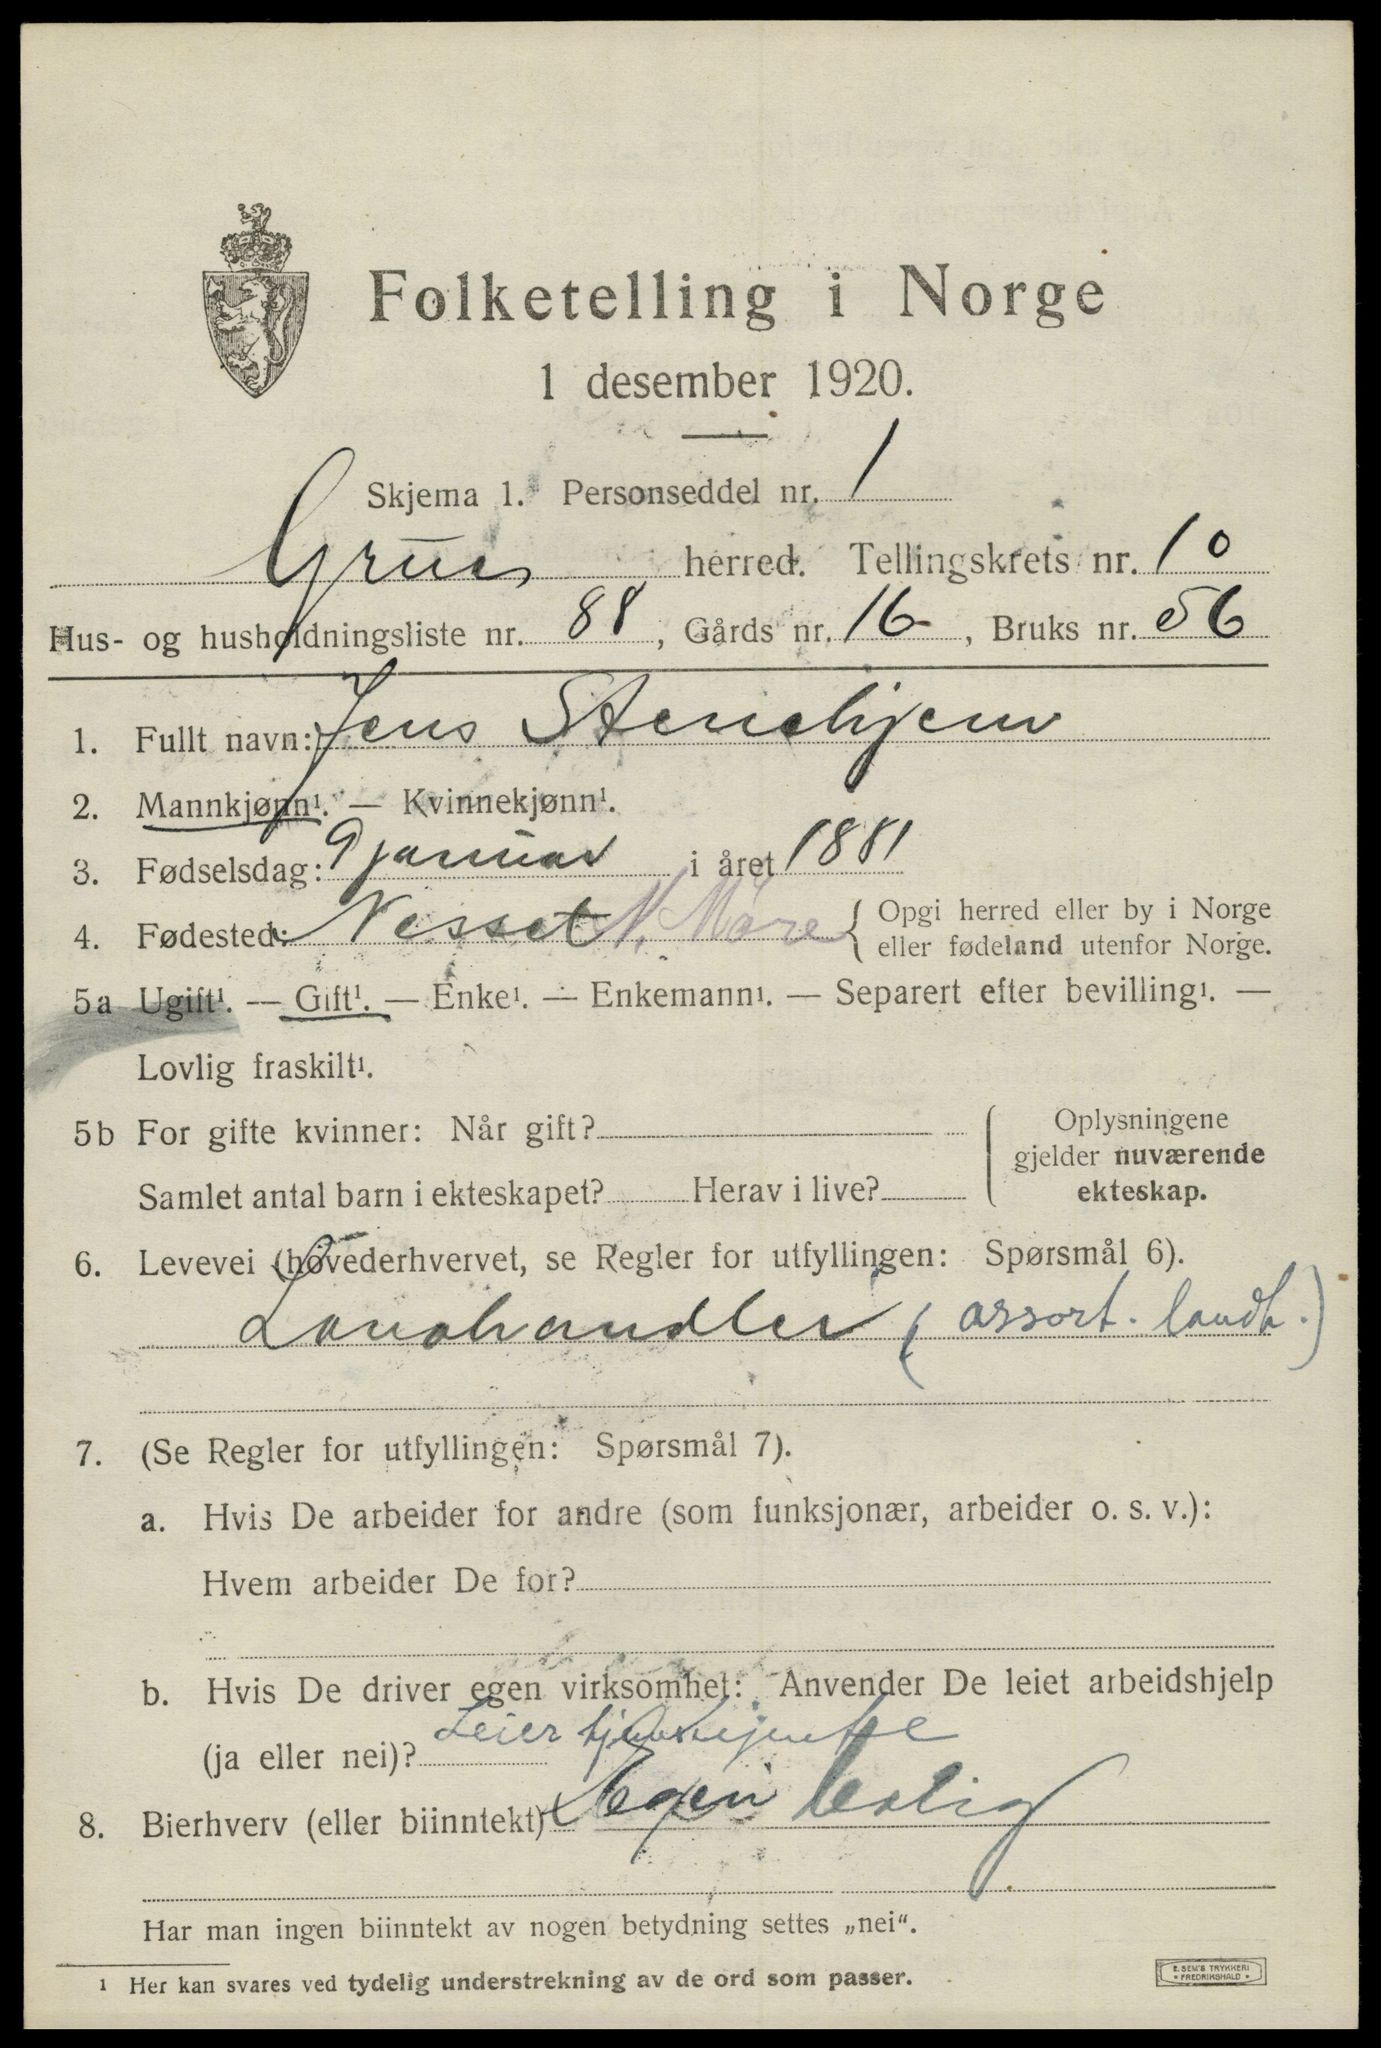 Folketelling i Norge
1 desember 1920.
Skjema 1. Personseddel nr. 1
Grue herred. Tellingskrets nr. 10
Hus- og husholdningsliste nr. 88, Gårds nr. 16, Bruks nr. 56
1. Fullt navn: Jens Stenehjem
2. Mannkjønn¹. — Kvinnekjønn¹.
3. Fødselsdag: 9 januar i året 1881
4. Fødested: Nesset N. Møre { Opgi herred eller by i Norge
eller fødeland utenfor Norge.
5a Ugift¹. — Gift¹. — Enke¹. — Enkemann¹. — Separert efter bevilling¹. —
Lovlig fraskilt¹.
5b For gifte kvinner: Når gift?
Samlet antal barn i ekteskapet? Herav i live?
Oplysningene
gjelder nuværende
ekteskap.
6. Levevei (hovederhvervet, se Regler for utfyllingen: Spørsmål 6).
Landhandler (assort. landh.)
7. (Se Regler for utfyllingen: Spørsmål 7).
a. Hvis De arbeider for andre (som funksjonær, arbeider o. s. v.):
Hvem arbeider De for?
b. Hvis De driver egen virksomhet: Anvender De leiet arbeidshjelp
(ja eller nei)? Leier tjenestejente
8. Bierhverv (eller biinntekt) Egen bolig
Har man ingen biinntekt av nogen betydning settes „nei“.
¹ Her kan svares ved tydelig understrekning av de ord som passer.
E. SEM'S TRYKKERI
• FREDRIKSHALD •